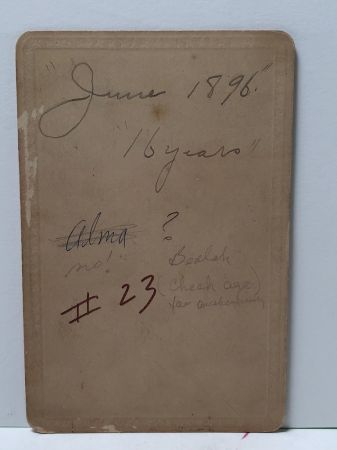 "June 1896"
"16 years"
Alma ?
no!" Beulah
# 23 (check age)
for